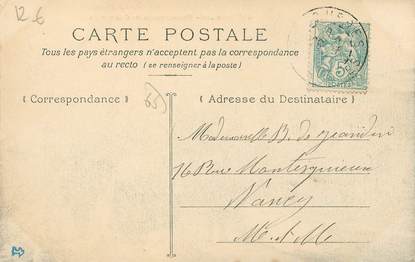 12-6
CARTE POSTALE
Tous les pays étrangers n'acceptent pas la correspondance
au recto (se renseigner à la poste)
(Correspondance)
55
(Adresse du Destinataire)
Mademoiselle B. de Jeandin
16 Rue Montesquieu
Nancy
M.-et-M.